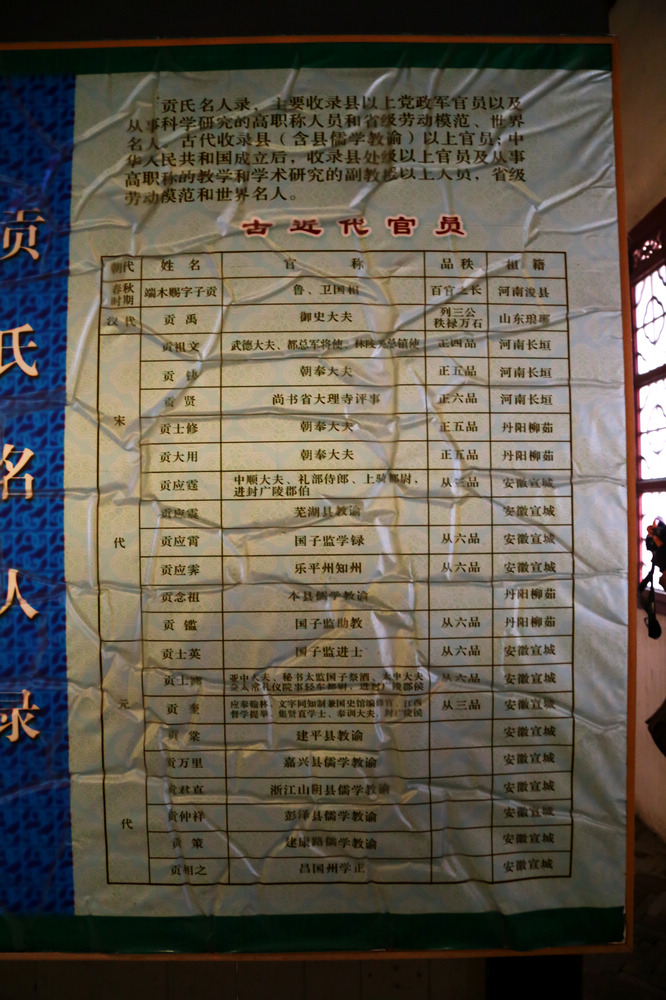 贡氏名人录
贡氏名人录，主要收录县以上党政军官员以及
从事科学研究的高职称人员和省级劳动模范、世界
名人。古代收录县（含县儒学教谕）以上官员；中
华人民共和国成立后，收录县处级以上官员及从事
高职称的教学和学术研究的副教授以上人员，省级
劳动模范和世界名人。
古近代官员
朝代 姓名 官称 品秩 祖籍
春秋时期 端木赐字子贡 鲁、卫国相 百官之长 河南浚县
汉代 贡禹 御史大夫 列三公秩禄万石 山东琅琊
宋代 贡祖文 武德大夫、都总军将使、 正四品 河南长垣
贡 朝奉大夫 正五品 河南长垣
贡贤 尚书省大理寺评事 正六品 河南长垣
贡士修 朝奉大夫 正五品 丹阳柳茹
贡大用 朝奉大夫 正五品 丹阳柳茹
贡应霆 中顺大夫、礼部侍郎、上骑都尉、 从三品 安徽宣城
进封广陵郡伯
贡应霆 芜湖县教谕 安徽宣城
贡应霄 国子监学録 从六品 安徽宣城
贡应霁 乐平州知州 从六品 安徽宣城
贡念祖 本县儒学教谕 丹阳柳茹
贡镒 国子监助教 从六品 丹阳柳茹
元代 贡士英 国子监进士 从六品 安徽宣城
贡士 亚中大夫、秘书太监国子祭酒、太中大夫 从六品 安徽宣城
贡奎 应奉翰林、文字同知制兼国史馆编修官、江西 从三品 安徽宣城
督学提举、集贤直学士、奉训大夫、封广陵侯
贡棠 建平县教谕 安徽宣城
贡万里 嘉兴县儒学教谕 安徽宣城
贡君直 浙江山阴县儒学教谕 安徽宣城
贡仲祥 彭泽县儒学教谕 安徽宣城
贡策 建康路儒学教谕 安徽宣城
贡相之 昌国州学正 安徽宣城